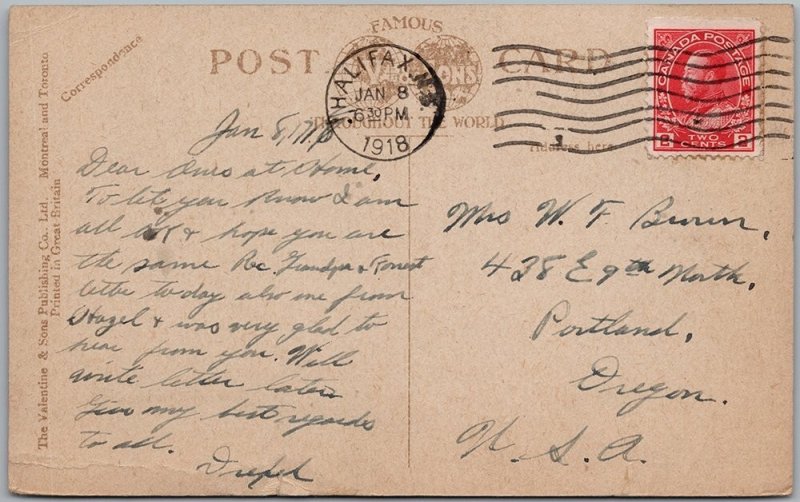 FAMOUS
POST CARD
VALENTINE'S
THROUGHOUT THE WORLD
Correspondence
Address here
HALIFAX, N.S.
JAN 8
6 30 PM
1918
CANADA POSTAGE
2 2
TWO
CENTS
The Valentine & Sons Publishing Co., Ltd. Montreal and Toronto
Printed in Great Britain
Jan 8/18
Dear Ones at Home,
To let you know I am
all OK & hope you are
the same Rec Grandpa & Forrest
letter today also one from
Hazel & was very glad to
hear from you. Will
write letter later
Give my best regards
to all.
Mrs W. F. Brown,
428 E 9th North,
Portland,
Oregon.
U. S. A.